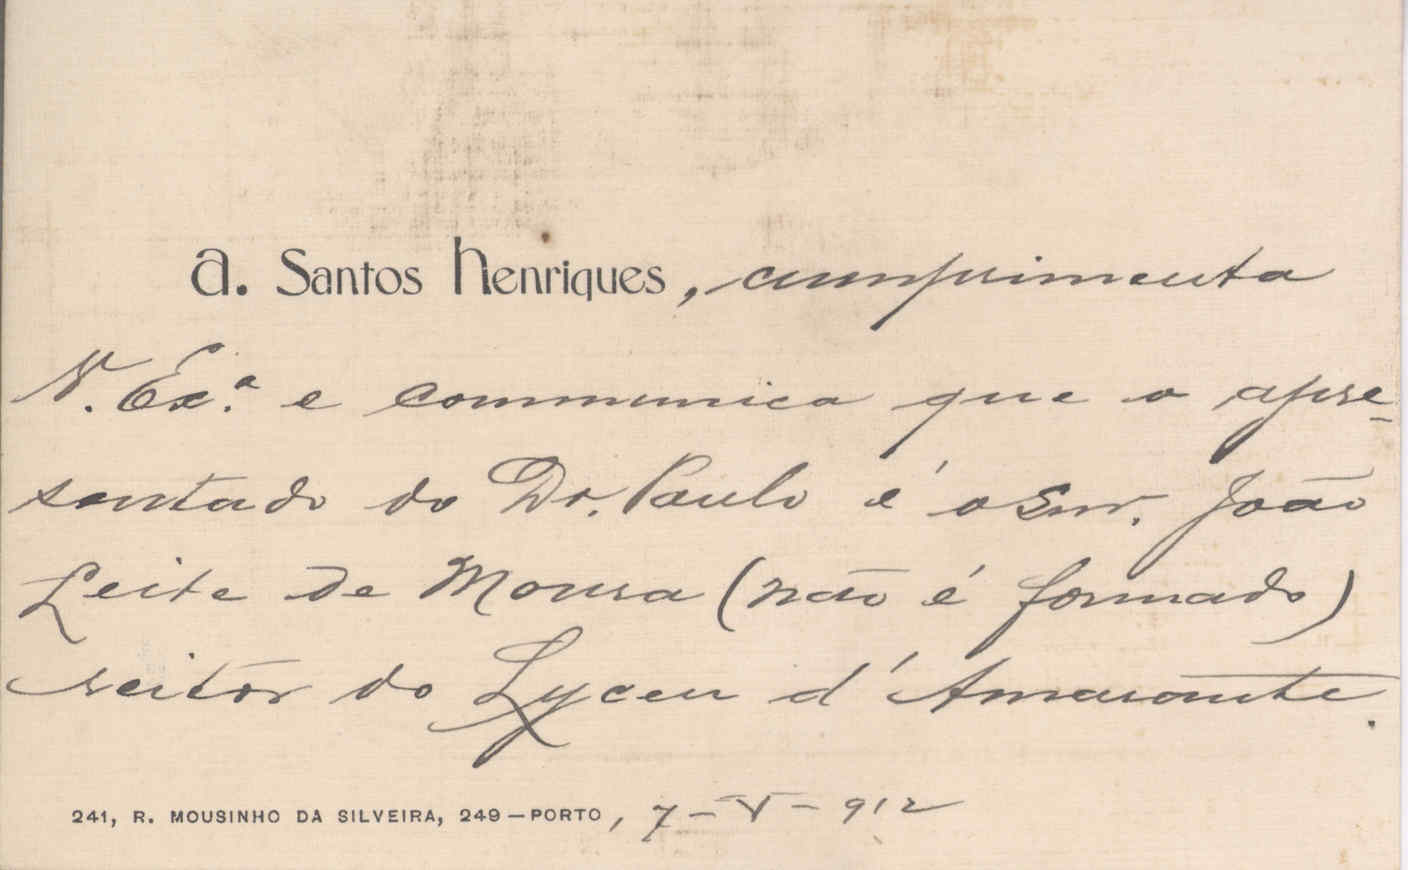 A. Santos Henriques, cumprimenta
V. Ex.ª e communica que o apre-
sentado do Dr. Paulo é o Snr. João
Leite de Moura (não é formado)
reitor do Lyceu d'Amarante.
241, R. MOUSINHO DA SILVEIRA, 249—PORTO, 7-V-912